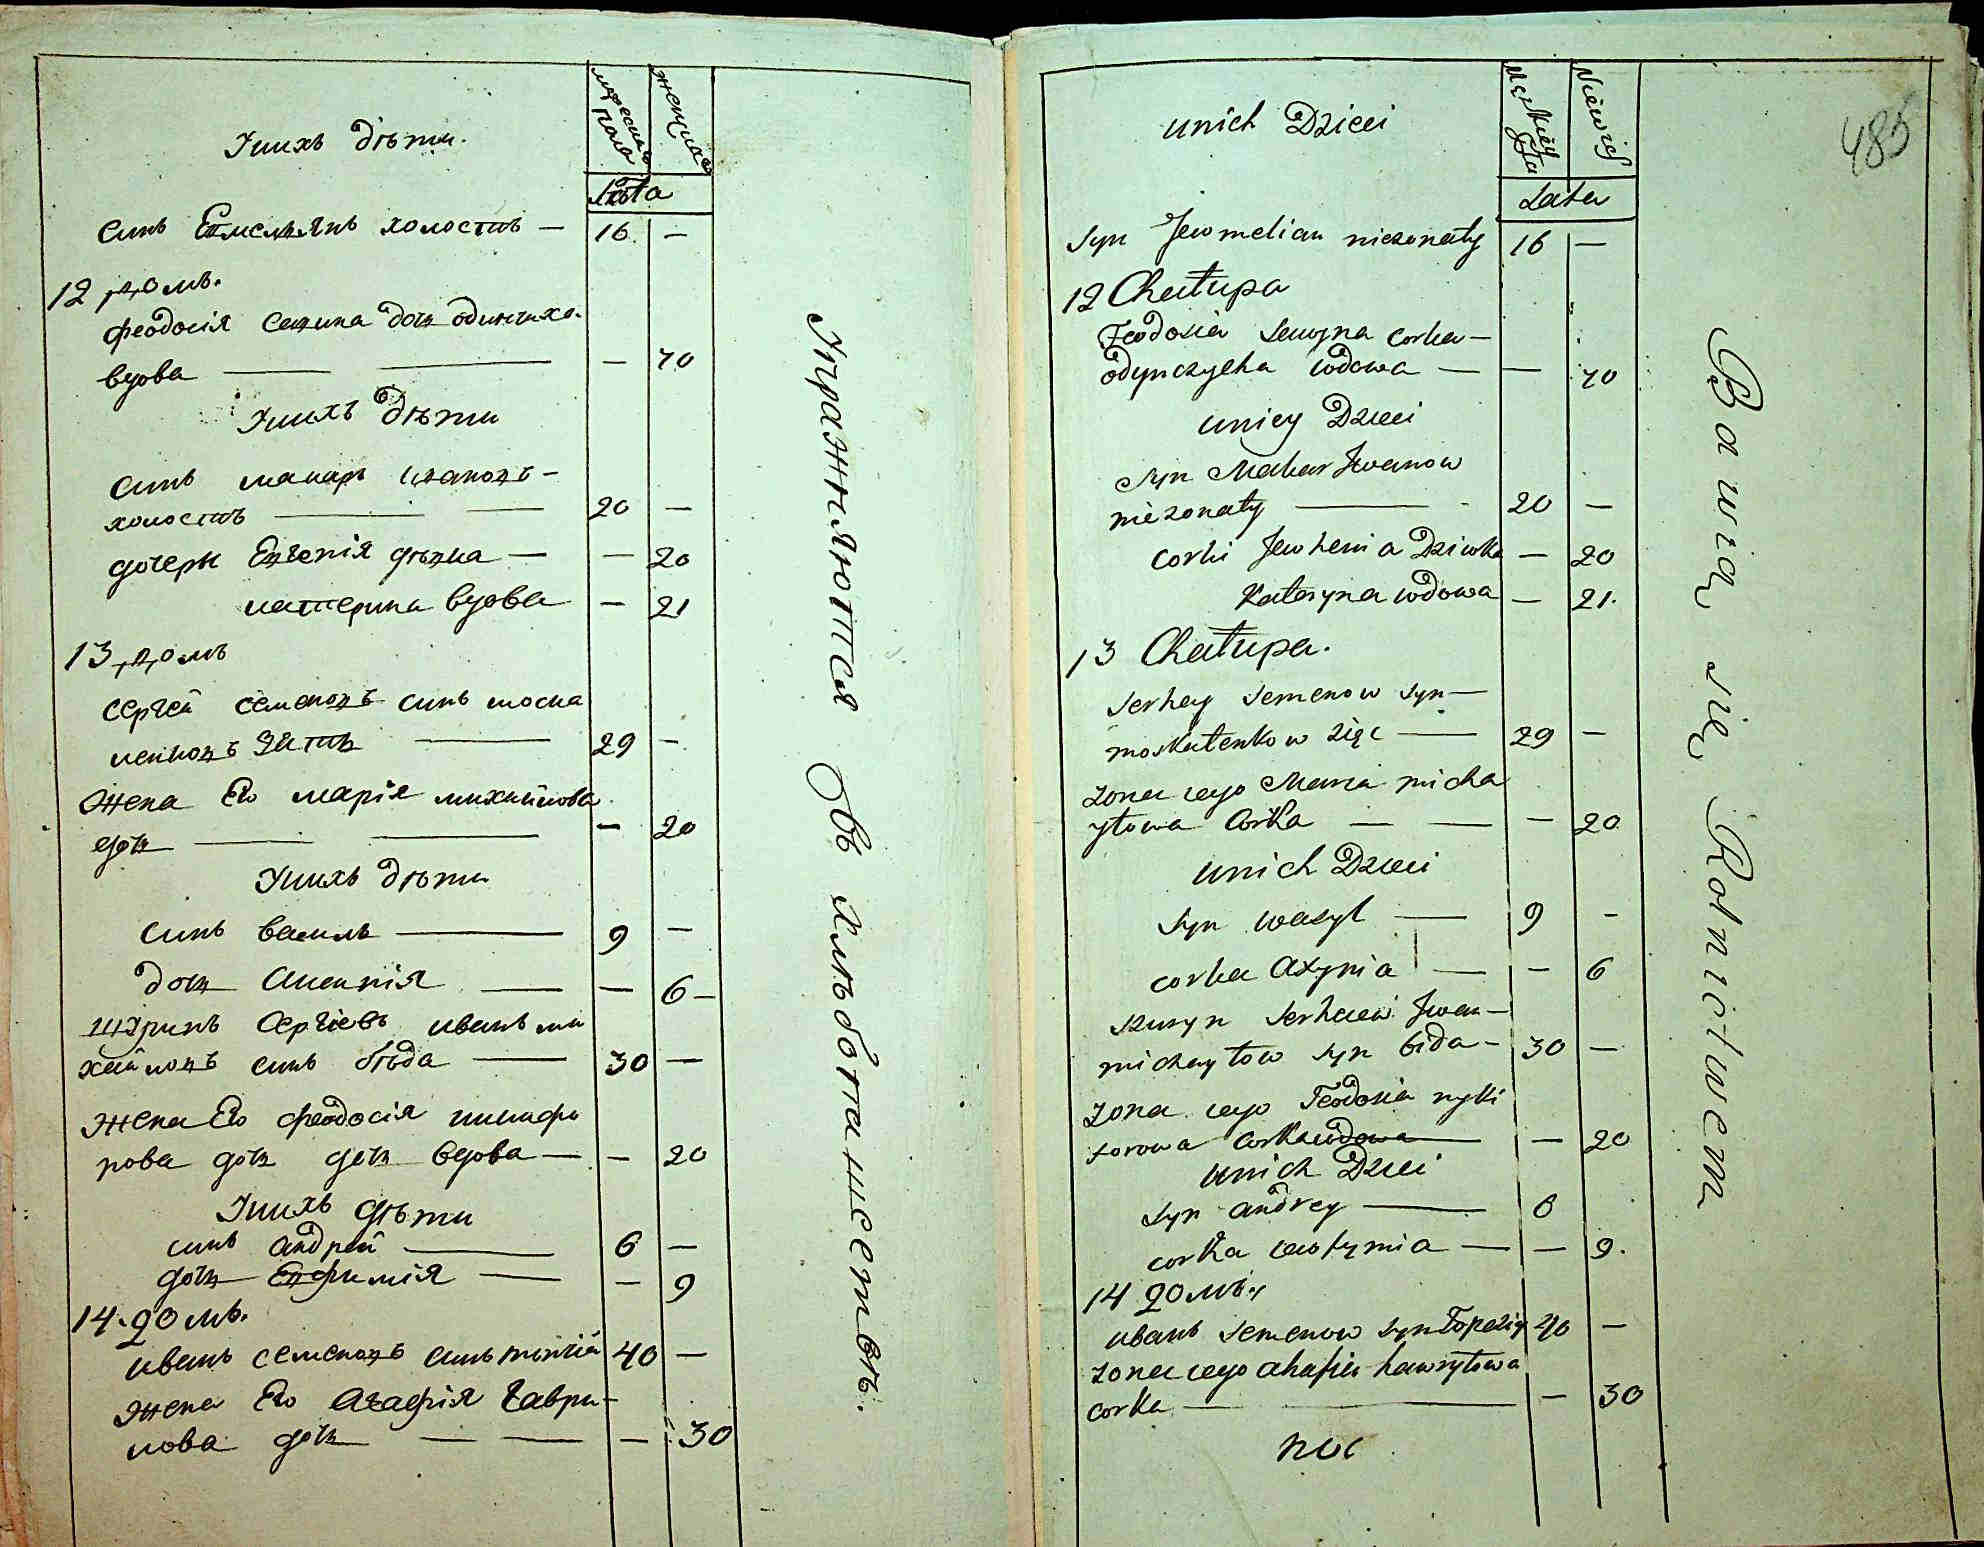 Унихъ дѣти.
мужеска пола
женска
лѣта
синъ Емелянъ холостъ — 16 —
12 домъ.
феодосія савина дочь одинчиха
вдова — — — 70
Унихъ дѣти
синъ макаръ ивановъ —
холостъ — — 20 —
дочери Евгенія дѣвка — — 20
катерина вдова — 21
13 домъ
сергей семеновъ синъ моска
ленковъ зять — 29 —
жена Его марія михайлова
дочь — — — 20
Унихъ дѣти
синъ василь — 9 —
дочь аксенія — — 6 —
шуринъ сергіевъ иванъ ми
хайловъ синъ бѣда — 30 —
жена Его феодосія никифо
рова дочь дочь вдова — — 20
Унихъ дѣти
синъ андрей — 6 —
дочь Евфимія — — 9
14. домъ.
иванъ семеновъ синъ 40 —
жена Его агафія гаври-
лова дочь — — — 30
Упражняются въ хлѣбопашествѣ.
unich Dzieci
Męskiey
Niewich
Lata
485
syn Jewmelian niezonaty 16 —
12 Chałupa
Feodosia sawyna corka —
odynczycha wdowa — — 70
unicy Dzieci
syn Makar Jwanow
niezonaty — 20 —
corki Jewhenia Dziwka — 20
Kateryna wdowa — 21.
13 Chałupa.
serhey semenow syn —
moskalenkow zięc — 29 —
zona iego Maria micha
yłowa Corka — — — 20
unich Dzieci
syn wasyl — 9 —
corka axynia — — 6
szuryn serheiew Jwan —
michayłow syn bida — 30 —
zona iego Feodosia nyki
forowa Corka wdowa — — 20
unich Dzieci
syn andrey — 6
corka iewfymia — — 9.
14 домъ.
иванъ semenow syn Topeziy 40 —
zona iego ahafia hawryłowa
corka — — — 30
Bawią się Rolnictwem